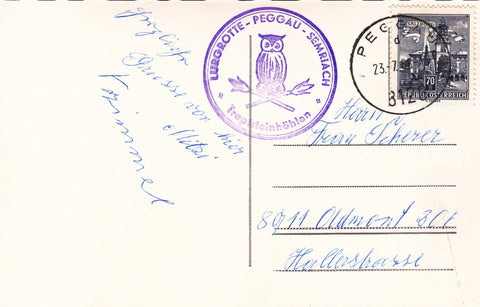 fröhliche
Grüsse von hier
LURGROTTE - PEGGAU - SEMRIACH
Tropfsteinhöhlen
PEGGAU
23.7.
8120
70
REPUBLIK ÖSTERREICH
Herrn u
Frau Scherer
8011 Oldmont 306
Hallerstrasse